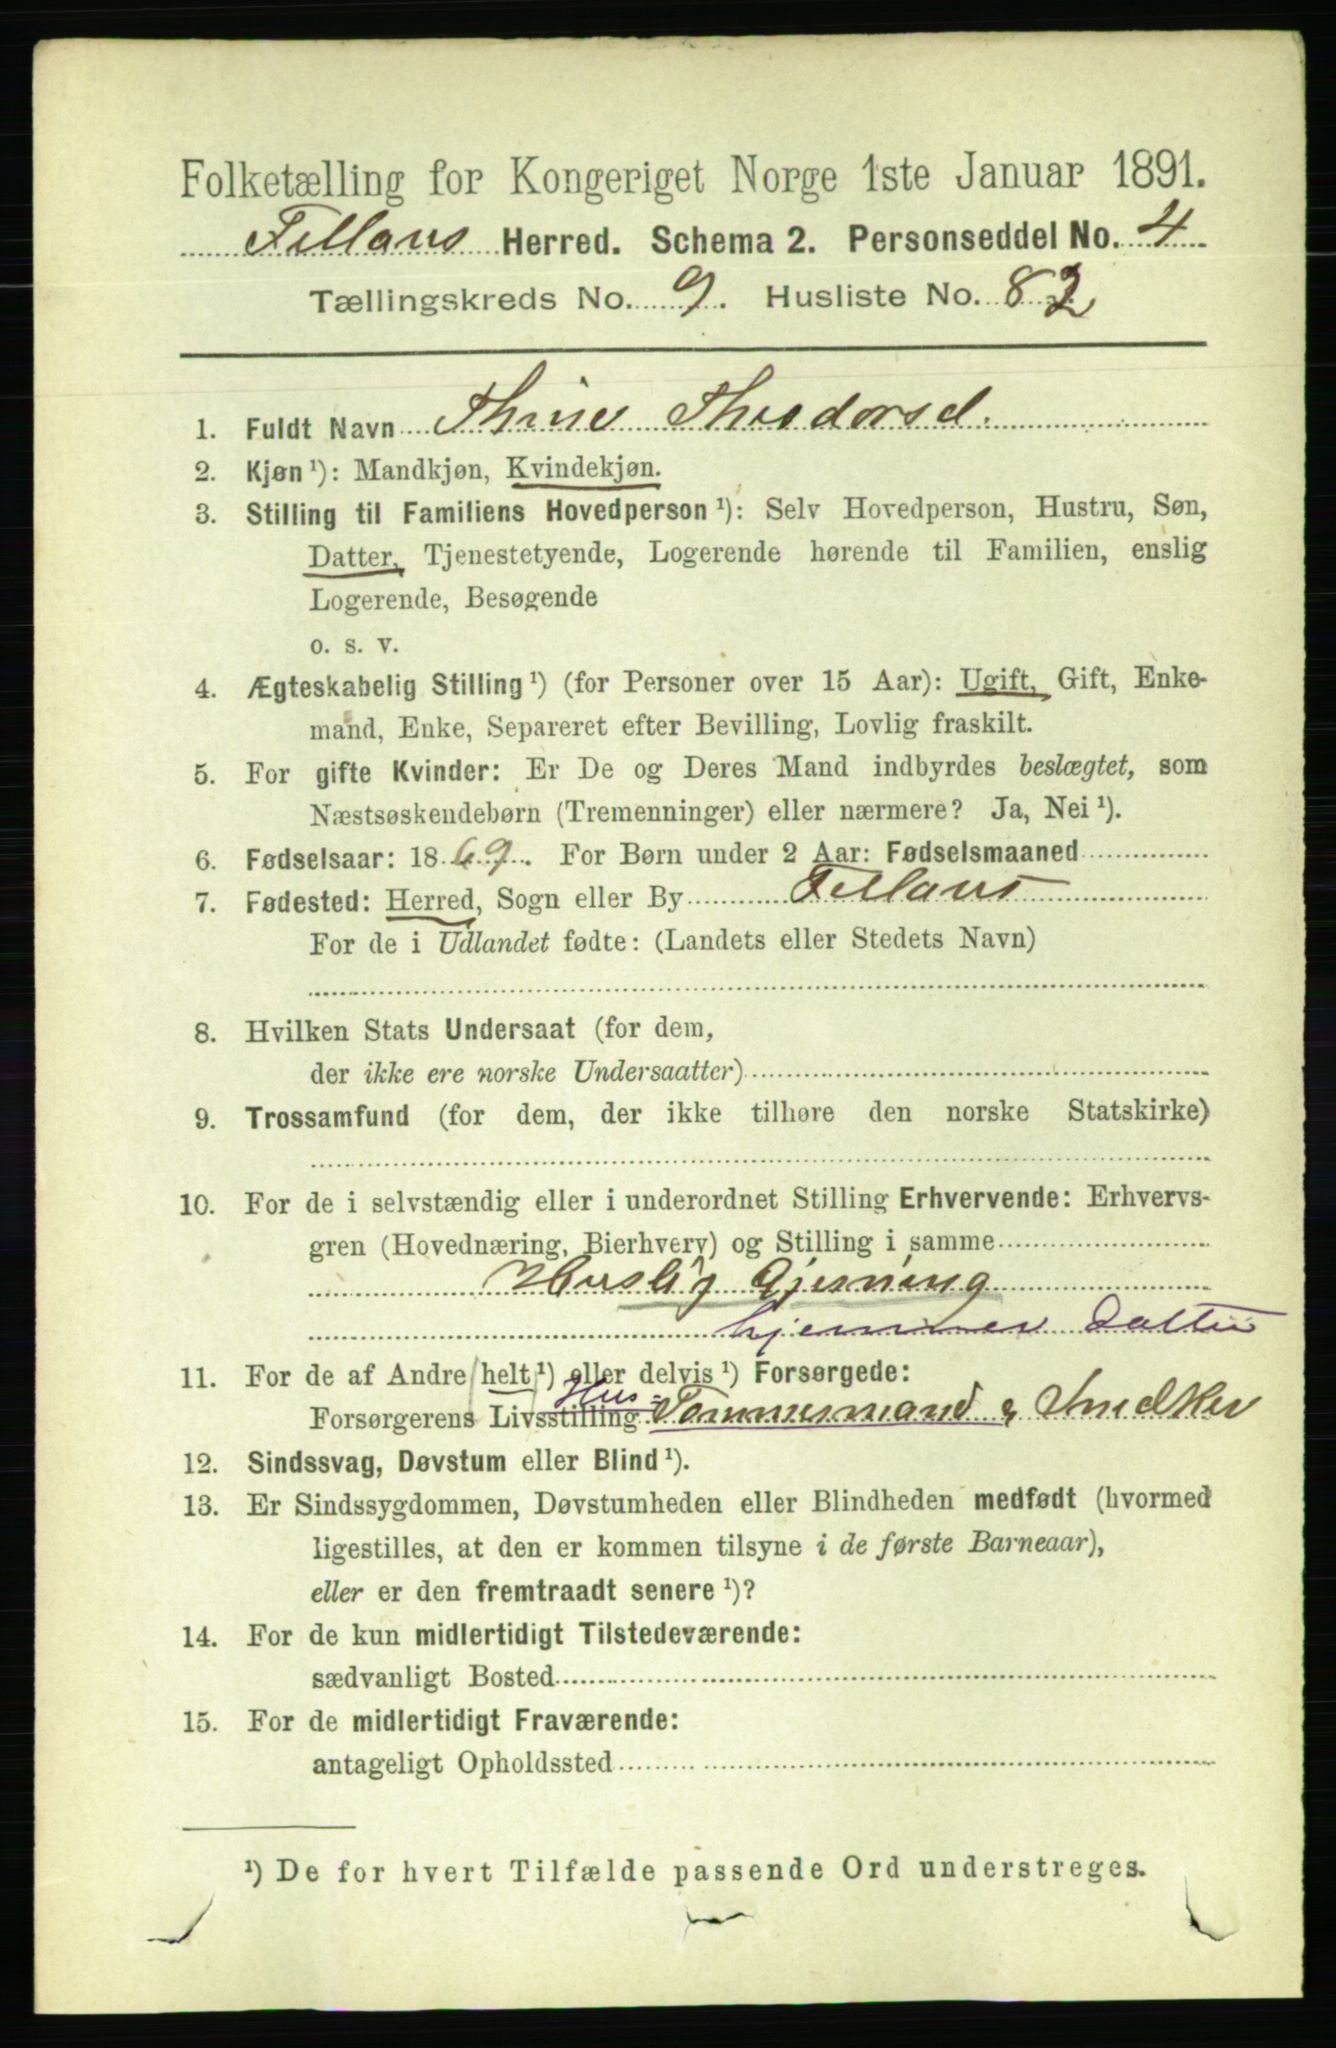 Folketælling for Kongeriget Norge 1ste Januar 1891.
Fillans Herred. Schema 2. Personseddel No. 4
Tællingskreds No. 9. Husliste No. 82
1. Fuldt Navn Thrine Theodorsd.
2. Kjøn¹): Mandkjøn, Kvindekjøn.
3. Stilling til Familiens Hovedperson¹): Selv Hovedperson, Hustru, Søn,
Datter, Tjenestetyende, Logerende hørende til Familien, enslig
Logerende, Besøgende
o. s. v.
4. Ægteskabelig Stilling¹) (for Personer over 15 Aar): Ugift, Gift, Enke-
mand, Enke, Separeret efter Bevilling, Lovlig fraskilt.
5. For gifte Kvinder: Er De og Deres Mand indbyrdes beslægtet, som
Næstsøskendebørn (Tremenninger) eller nærmere? Ja, Nei¹).
6. Fødselsaar: 1869. For Børn under 2 Aar: Fødselsmaaned
7. Fødested: Herred, Sogn eller By Fillans
For de i Udlandet fødte: (Landets eller Stedets Navn)
8. Hvilken Stats Undersaat (for dem,
der ikke ere norske Undersaatter)
9. Trossamfund (for dem, der ikke tilhøre den norske Statskirke)
10. For de i selvstændig eller i underordnet Stilling Erhvervende: Erhvervs-
gren (Hovednæring, Bierhverv) og Stilling i samme
Huslig Gjerning
hjemmev Datter
11. For de af Andre helt¹) eller delvis¹) Forsørgede:
Forsørgerens Livsstilling Hus-Tømmermand & Snedker
12. Sindssvag, Døvstum eller Blind¹).
13. Er Sindssygdommen, Døvstumheden eller Blindheden medfødt (hvormed
ligestilles, at den er kommen tilsyne i de første Barneaar),
eller er den fremtraadt senere¹)?
14. For de kun midlertidigt Tilstedeværende:
sædvanligt Bosted
15. For de midlertidigt Fraværende:
antageligt Opholdssted
¹) De for hvert Tilfælde passende Ord understreges.